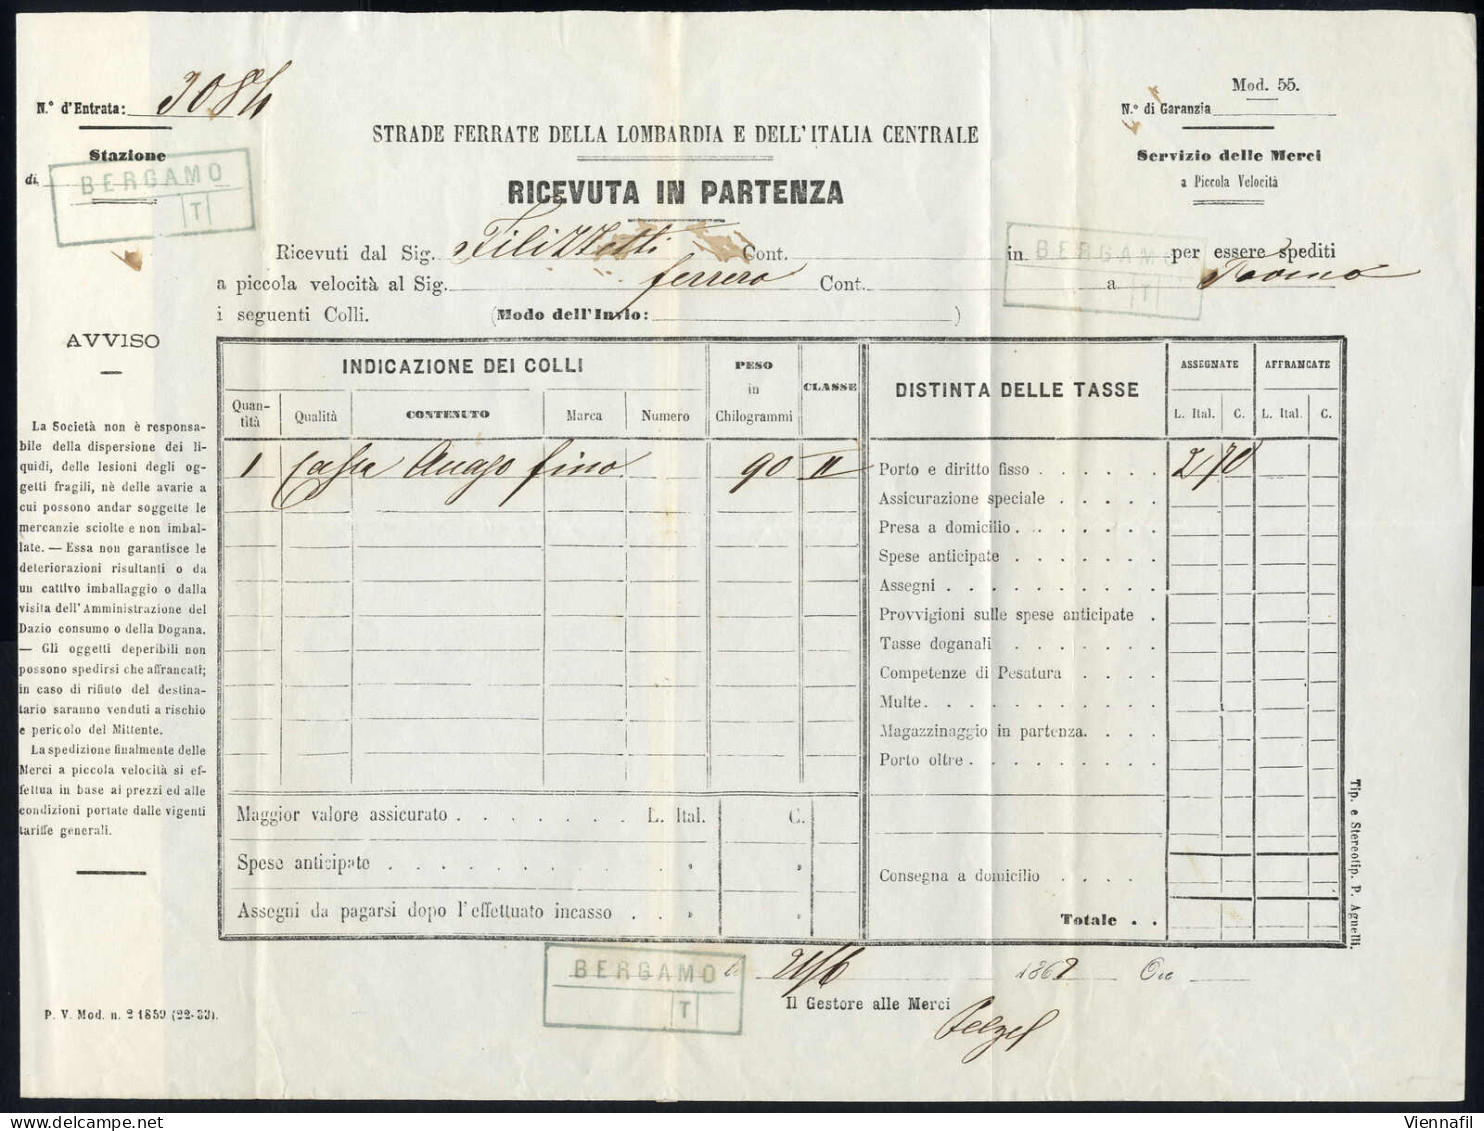 Mod. 55.
N.º d'Entrata: 3084
N.º di Garanzia
STRADE FERRATE DELLA LOMBARDIA E DELL'ITALIA CENTRALE
Stazione
Servizio delle Merci
di
BERGAMO
T
a Piccola Velocità
RICEVUTA IN PARTENZA
Ricevuti dal Sig. Cont. in BERGAMO per essere spediti
a piccola velocità al Sig. ferrero Cont. T a
i seguenti Colli. (Modo dell'Invio: )
AVVISO
La Società non è responsa-
bile della dispersione dei li-
quidi, delle lesioni degli og-
getti fragili, nè delle avarie a
cui possono andar soggette le
mercanzie sciolte e non imbal-
late. — Essa non garantisce le
deteriorazioni risultanti o da
un cattivo imballaggio o dalla
visita dell'Amministrazione del
Dazio consumo o della Dogana.
— Gli oggetti deperibili non
possono spedirsi che affrancati;
in caso di rifiuto del destina-
tario saranno venduti a rischio
e pericolo del Mittente.
La spedizione finalmente delle
Merci a piccola velocità si ef-
fettua in base ai prezzi ed alle
condizioni portate dalle vigenti
tariffe generali.
INDICAZIONE DEI COLLI
PESO
in
Chilogrammi
CLASSE
Quan-
tità
Qualità
CONTENUTO
Marca
Numero
1 fino 90 II
Maggior valore assicurato . . . . . . . L. Ital. C.
Spese anticipate . . . . . . . . . » »
Assegni da pagarsi dopo l'effettuato incasso . . » »
DISTINTA DELLE TASSE
ASSEGNATE
AFFRANCATE
L. Ital. C. L. Ital. C.
Porto e diritto fisso . . . . . . 2 70
Assicurazione speciale . . . . .
Presa a domicilio . . . . . . .
Spese anticipate . . . . . . .
Assegni . . . . . . . . . .
Provvigioni sulle spese anticipate .
Tasse doganali . . . . . . .
Competenze di Pesatura . . . .
Multe. . . . . . . . . . .
Magazzinaggio in partenza. . . .
Porto oltre . . . . . . . . .
Consegna a domicilio . . . .
Totale . .
Tip. e Stereotip. P. Agnelli.
BERGAMO
T
21/6 1862 Ore
Il Gestore alle Merci
P. V. Mod. n. 2 1859 (22-33).
Viennafil